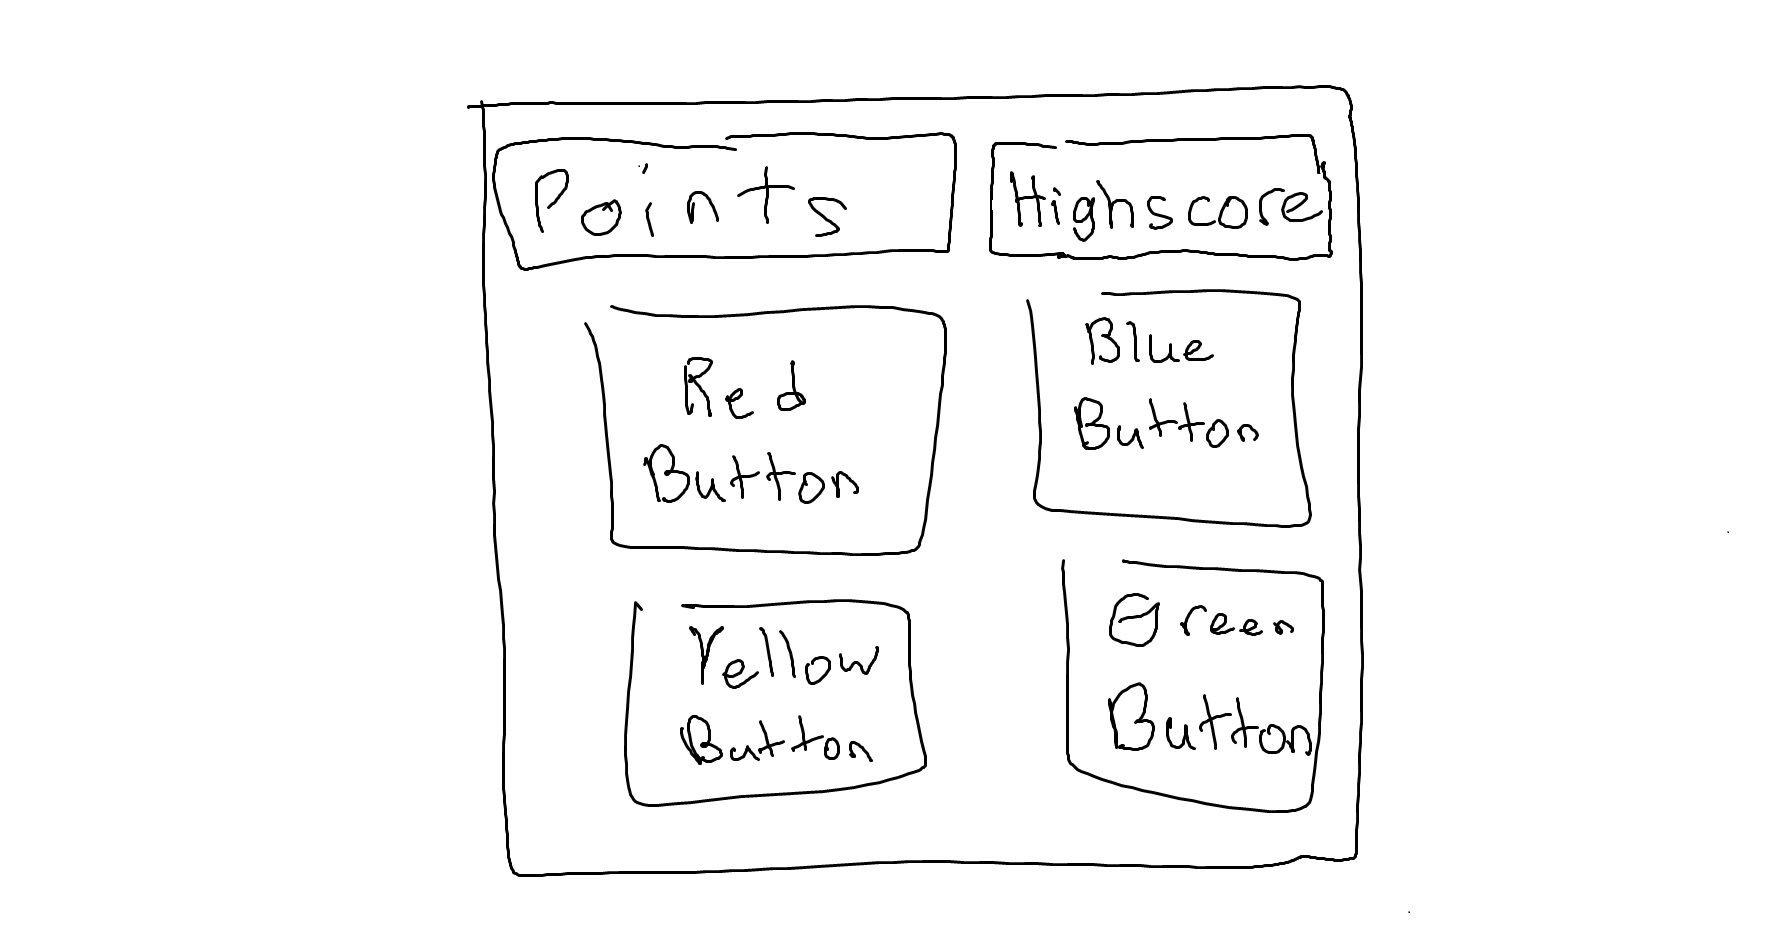 Points
Highscore
Red
Button
Blue
Button
Yellow
Button
Green
Button